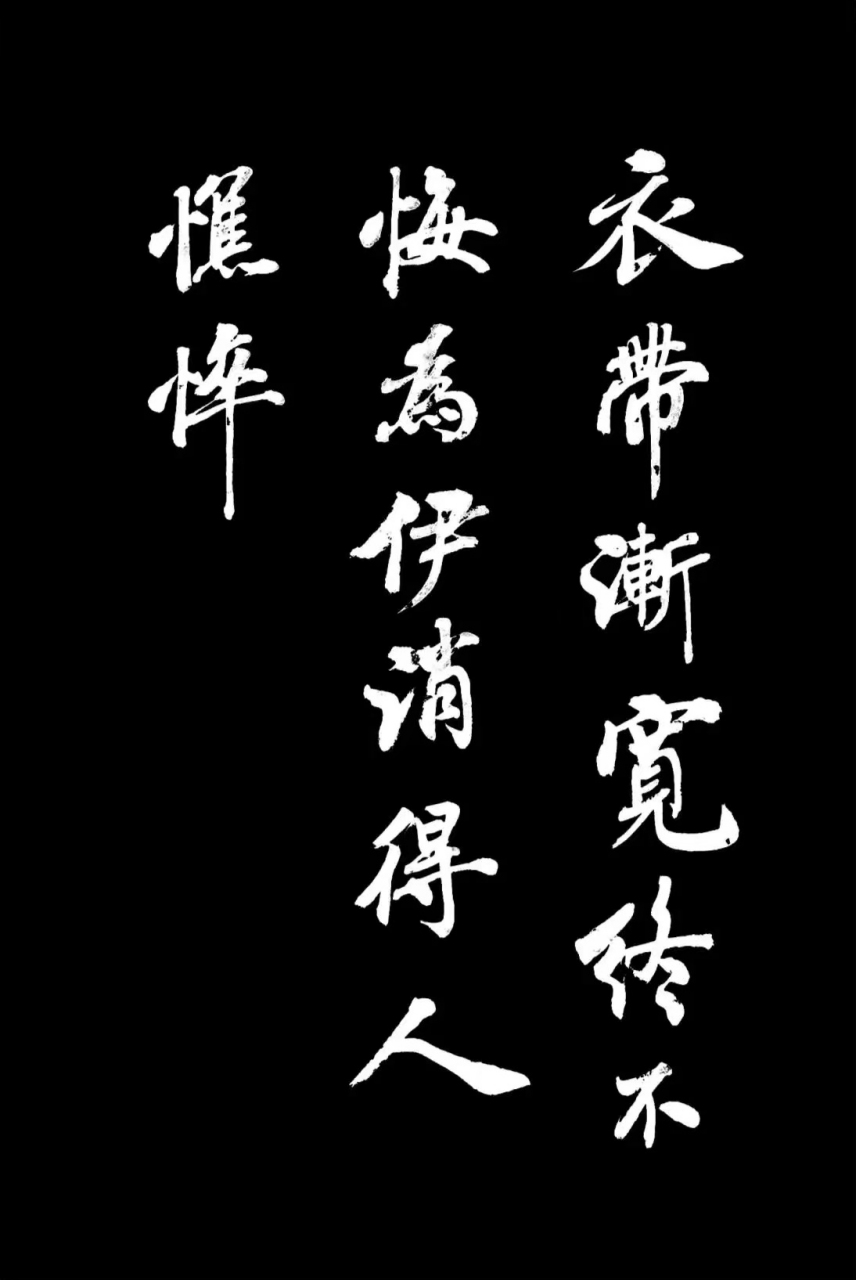 衣帶漸寬終不
悔為伊消得人
憔悴